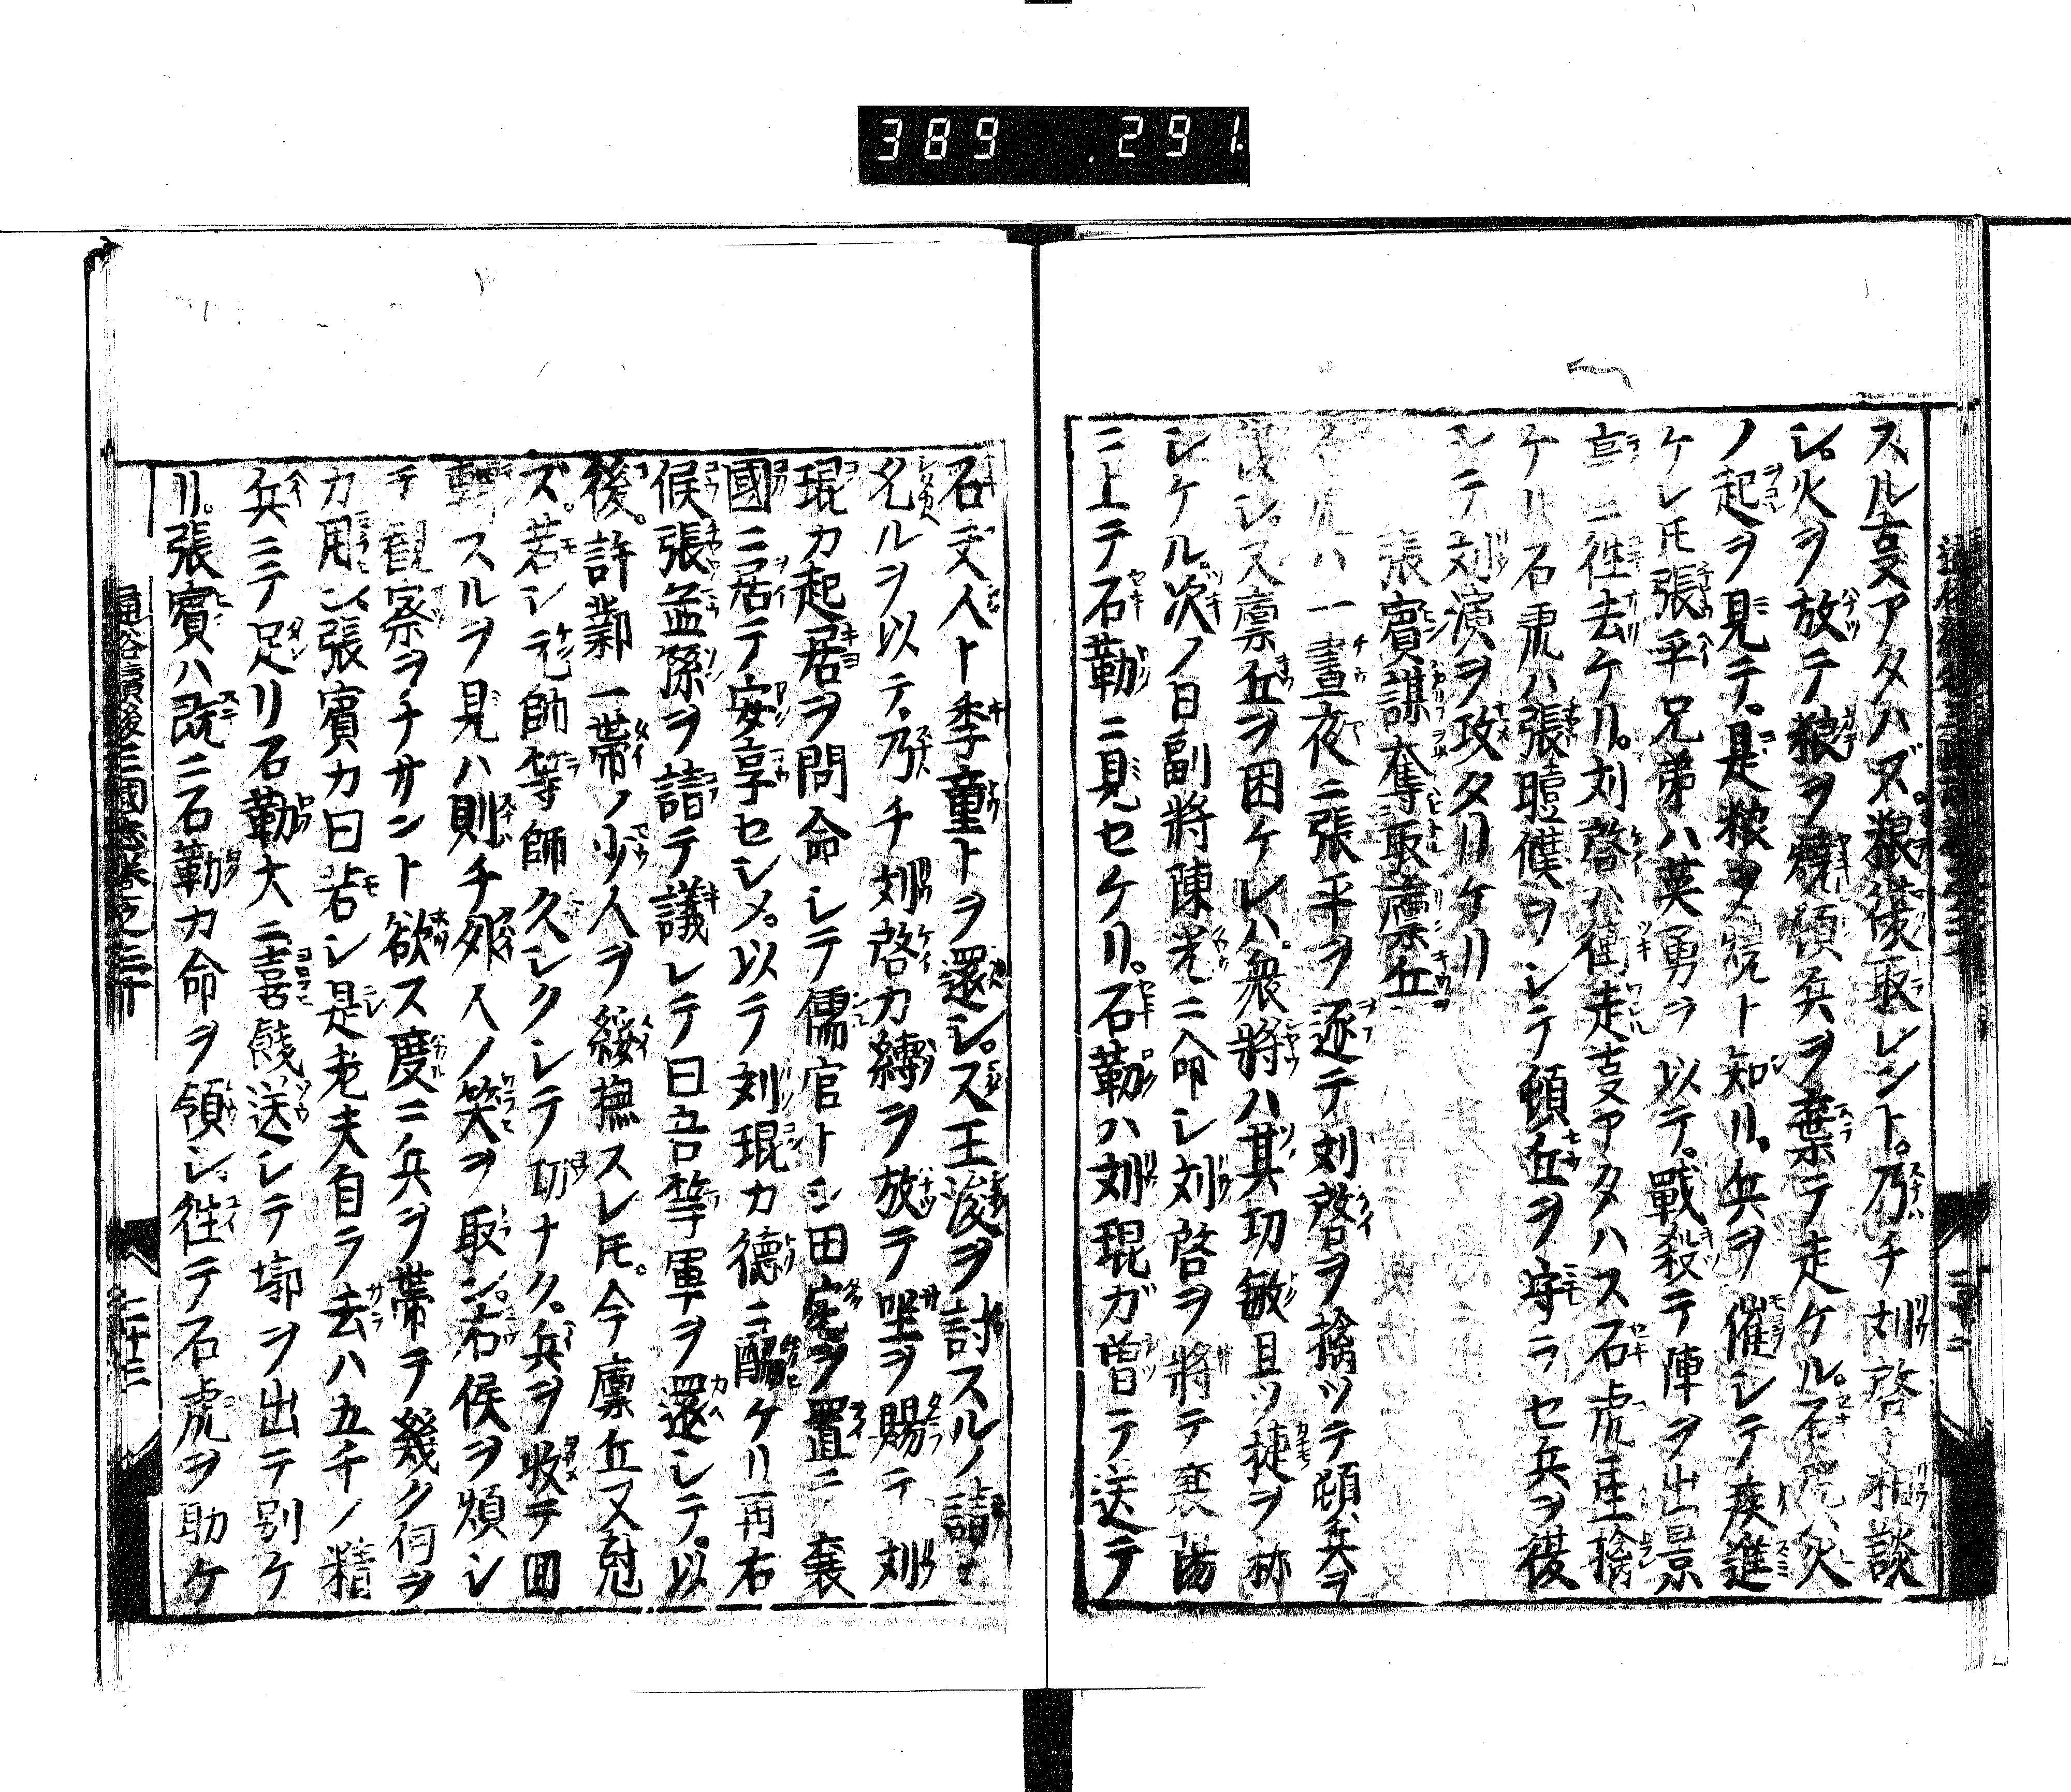 389 .291.
スル支アタハズ。粮從取レント。乃チ刘啓ト相談
シ。火ヲ放テ粮ヲ燒頓兵ヲ棄テ走ケル。石虎火
ノ起ヲ見テ。是粮ヲ燒ト知リ。兵ヲ催シテ疾進
ケレ𪜈張平兄弟ハ英勇ヲ以テ。戰殺テ陣ヲ出景
亭ニ徃去ケリ。刘啓ハ衝走支アタハス石虎生擒
ケリ石虎ハ張曀僕ヲシテ頓丘ヲ守ラセ兵ヲ從
シテ刘演ヲ攻タリケリ
張賓謀奪取廩丘
石虎ハ一晝夜ニ張平ヲ逐テ刘啓ヲ擒ツテ頓兵ヲ
シ。又廩丘ヲ困ケレハ。衆將ハ其功敏且ツ捷ヲ称
シケル。次ノ日副將陳光ニ命シ刘啓ヲ將テ襄陽
ニ上テ石勒ニ見セケリ。石勒ハ刘琨ガ曽テ送テ
石丈人ト季童トヲ還シ。又王浚ヲ討スルノ請ヲ
允ルヲ以テ、乃チ刘啓カ縛ヲ放テ坐ヲ賜テ刘
琨カ起居ヲ問命シテ儒官トシ田宅ヲ置ニ襄
國ニ居テ安享セシメ。以テ刘琨カ德ニ酬ケリ再右
侯張孟孫ヲ請テ議シテ曰吾等軍ヲ還シテ。以
後。許鄴一帯ノ少人ヲ綏撫スレ𪜈。今廩丘又尅
ズ。若シ元帥等師久シクシテ功ナク。兵ヲ收テ回
轉スルヲ見ハ則チ外人ノ笑ヲ取ン。右侯ヲ煩シ
テ観察ヲナサント欲ス度ニ兵ヲ帯テ幾ク何ヲ
カ用ン。張賓カ曰若シ是老夫自ラ去ハ五千ノ精
兵ニテ足リ石勒大ニ喜餞送シテ墎ヲ出テ別ケ
リ。張賓ハ既ニ石勒カ命ヲ領シ。徃テ石虎ヲ助ケ
通俗續後三國志卷之二十 二十三